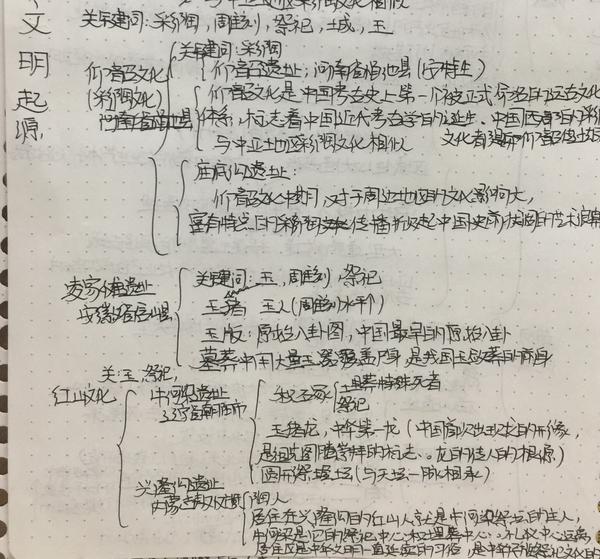 文明起源
与中亚地区彩陶文化相似
关键词：彩陶，雕刻，祭祀，土城，玉
关键词：彩陶
仰韶文化
仰韶遗址：河南省渑池县（安特生）
（彩陶文化）
仰韶文化是中国考古史上第一个被正式命名的远古文化
河南省渑池县
体系，标志着中国近代考古学的诞生。中国西部的彩陶
与中亚地区彩陶文化相似
文化者
庙底沟遗址：
仰韶文化中期，对于周边地区的文化影响大，
富有特点的彩陶文化传播掀起中国史前
凌家滩遗址
关键词：玉，雕刻，祭祀
安徽省含山县
玉猪 玉人（雕刻水平）
玉版：原始八卦图，中国最早的原始八卦
墓葬中用大量玉器覆盖尸身，是我国玉敛葬的前身
关：玉，祭祀，
红山文化
牛河梁遗址
辽宁省朝阳市
积石冢
土葬特殊死者
祭祀
玉猪龙，中华第一龙（中国首次出现龙的形像，
是祖先图腾崇拜的标志、龙的传人的根源）
圆形祭坛（与天坛一脉相承）
兴隆沟遗址
内蒙古赤峰敖汉旗
陶人
居住在兴隆沟的红山人就是牛河梁祭坛的主人，
牛河梁是它的祭祀中心和埋葬中心。礼仪中心远离
居住区是中华文明一直延续的习俗，是中华